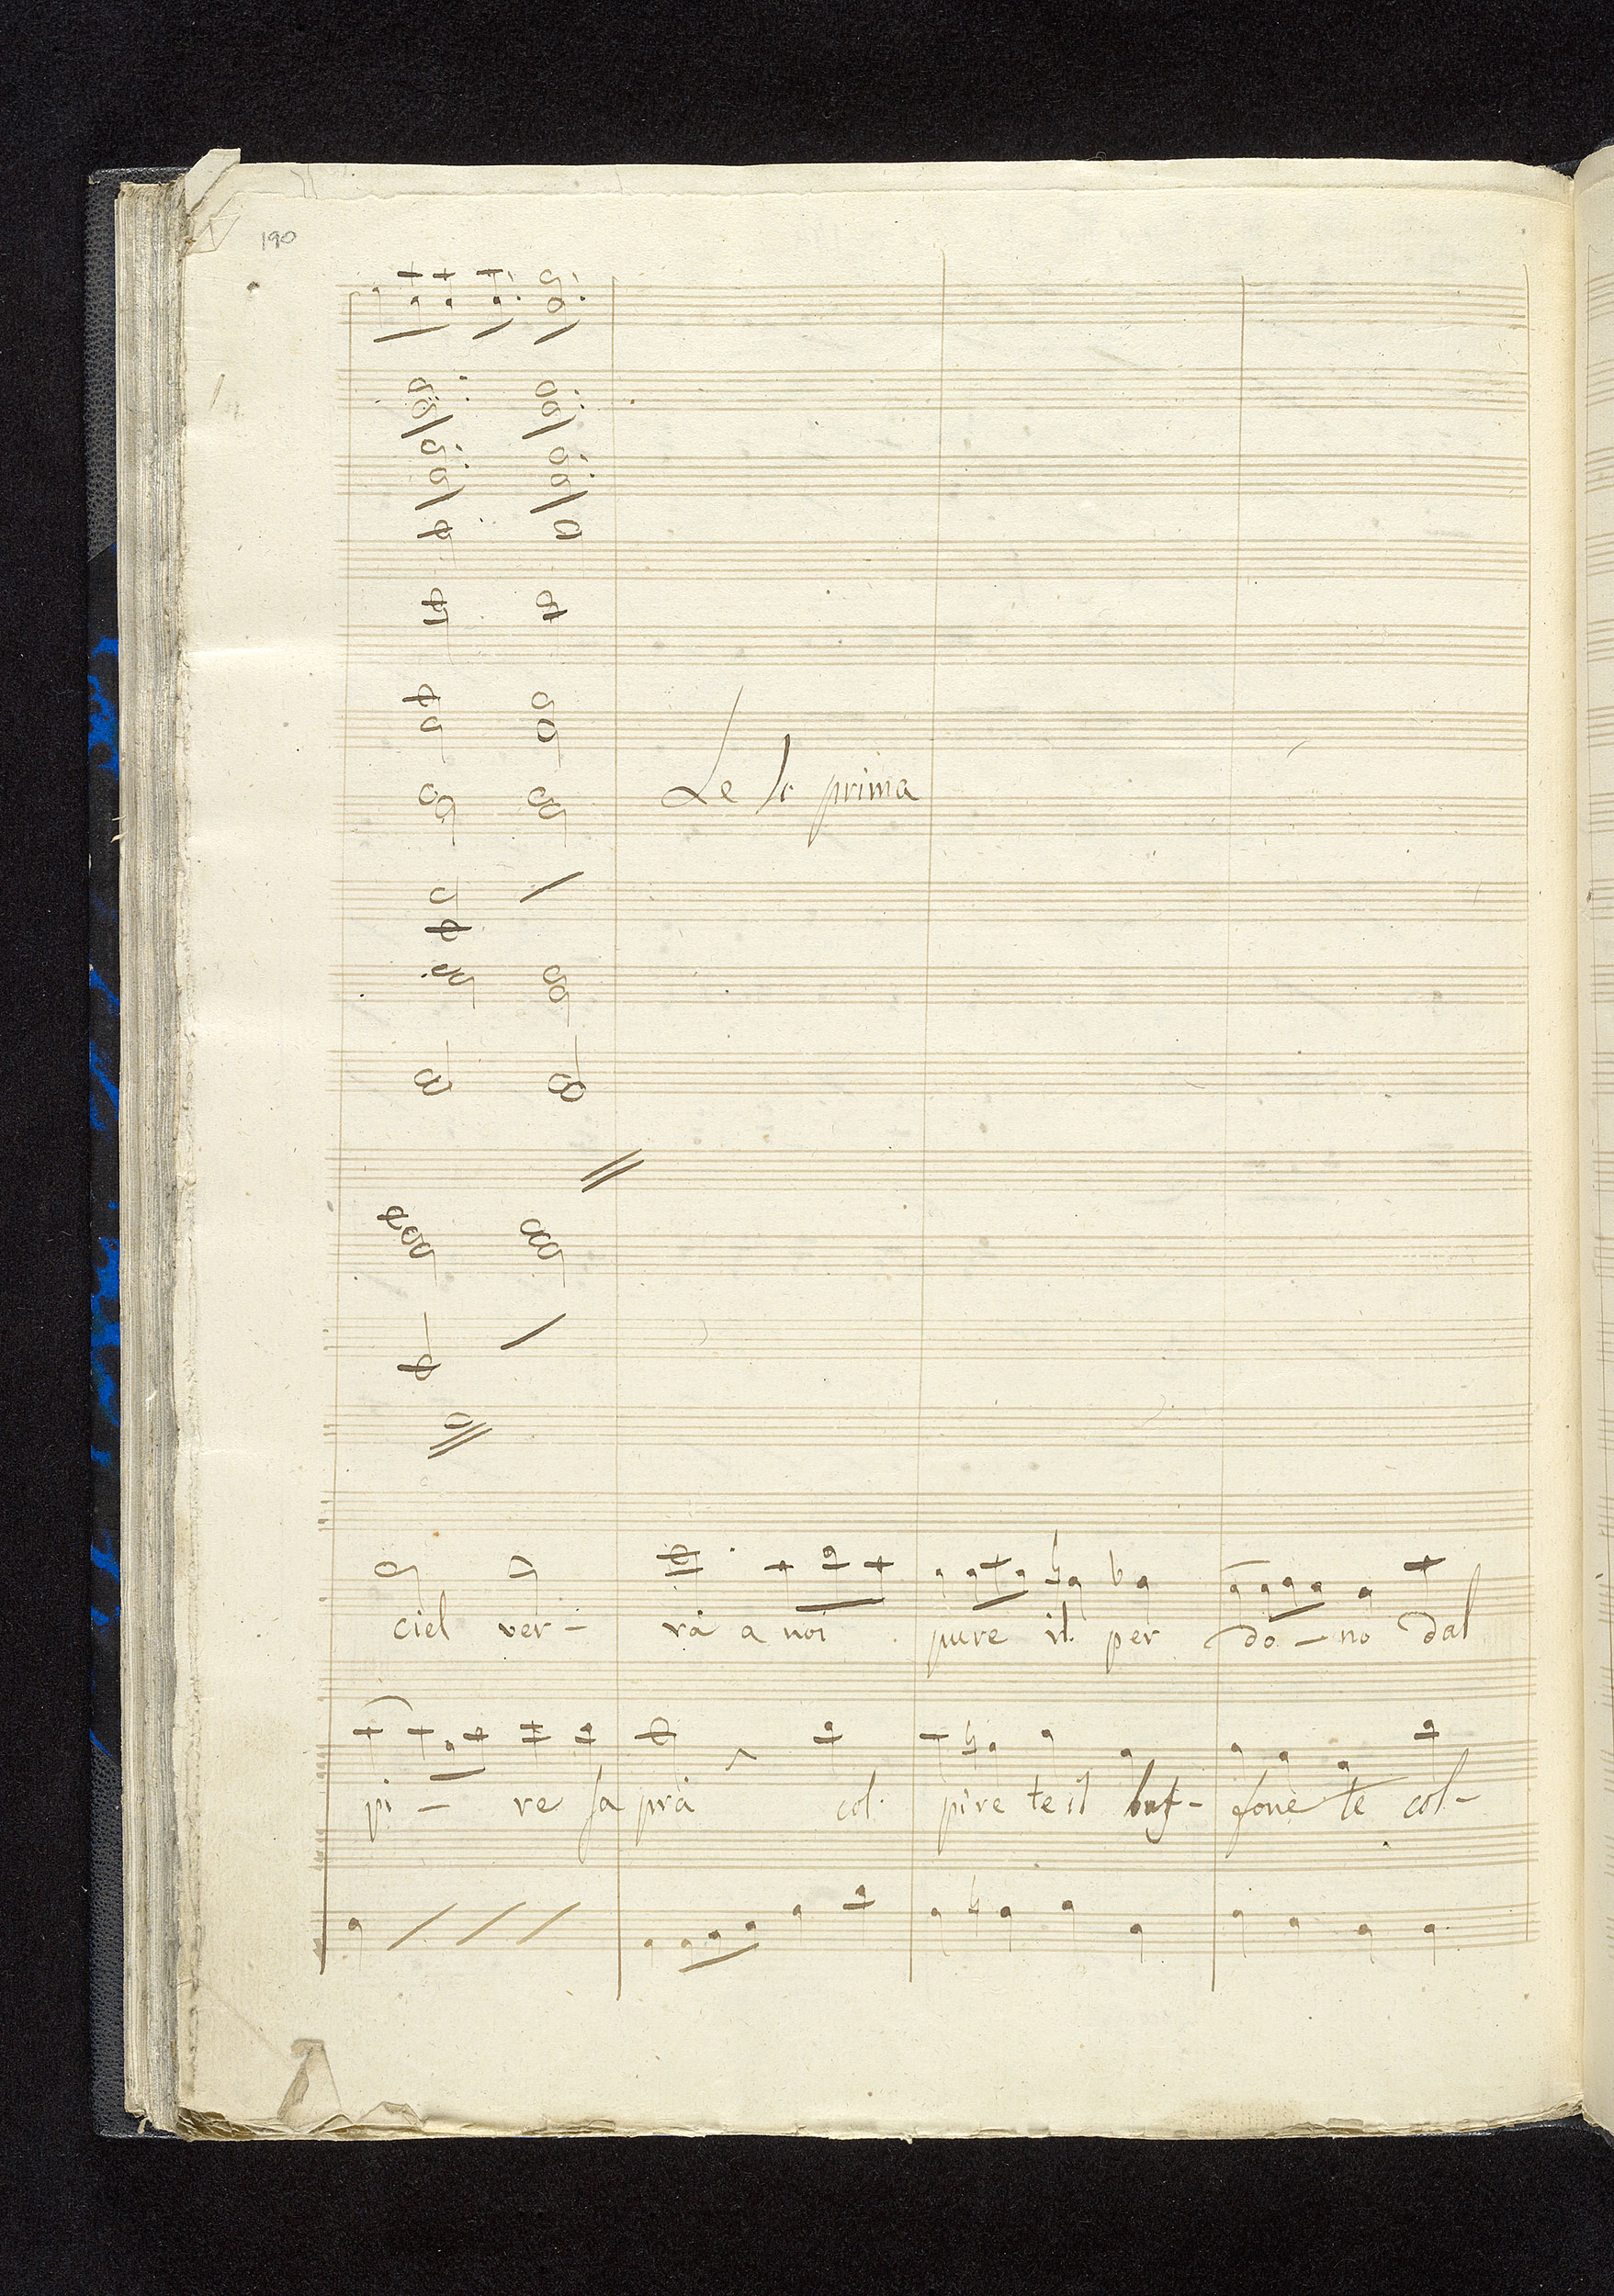 190
prima
ciel ver- rà a noi pure il per do - no dal
pi - re sa prà col. pire te il buf- fone te col-